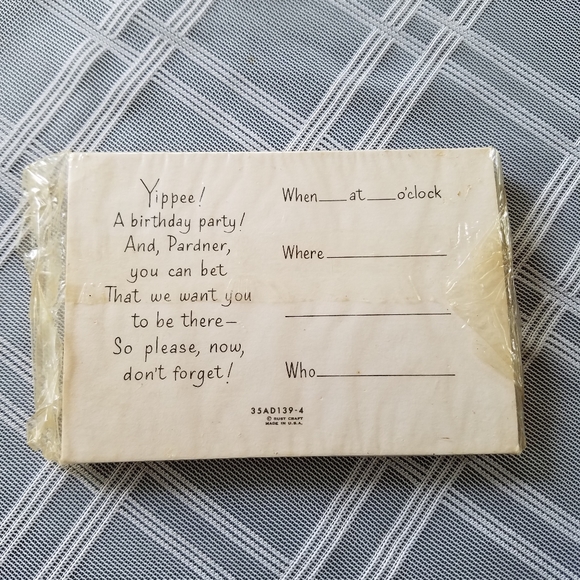 Yippee!
A birthday party!
And, Pardner,
you can bet
That we want you
to be there—
So please, now,
don't forget!
When___at___o'clock
Where_______________
____________________
Who_________________
35AD139-4
© RUST CRAFT
MADE IN U.S.A.